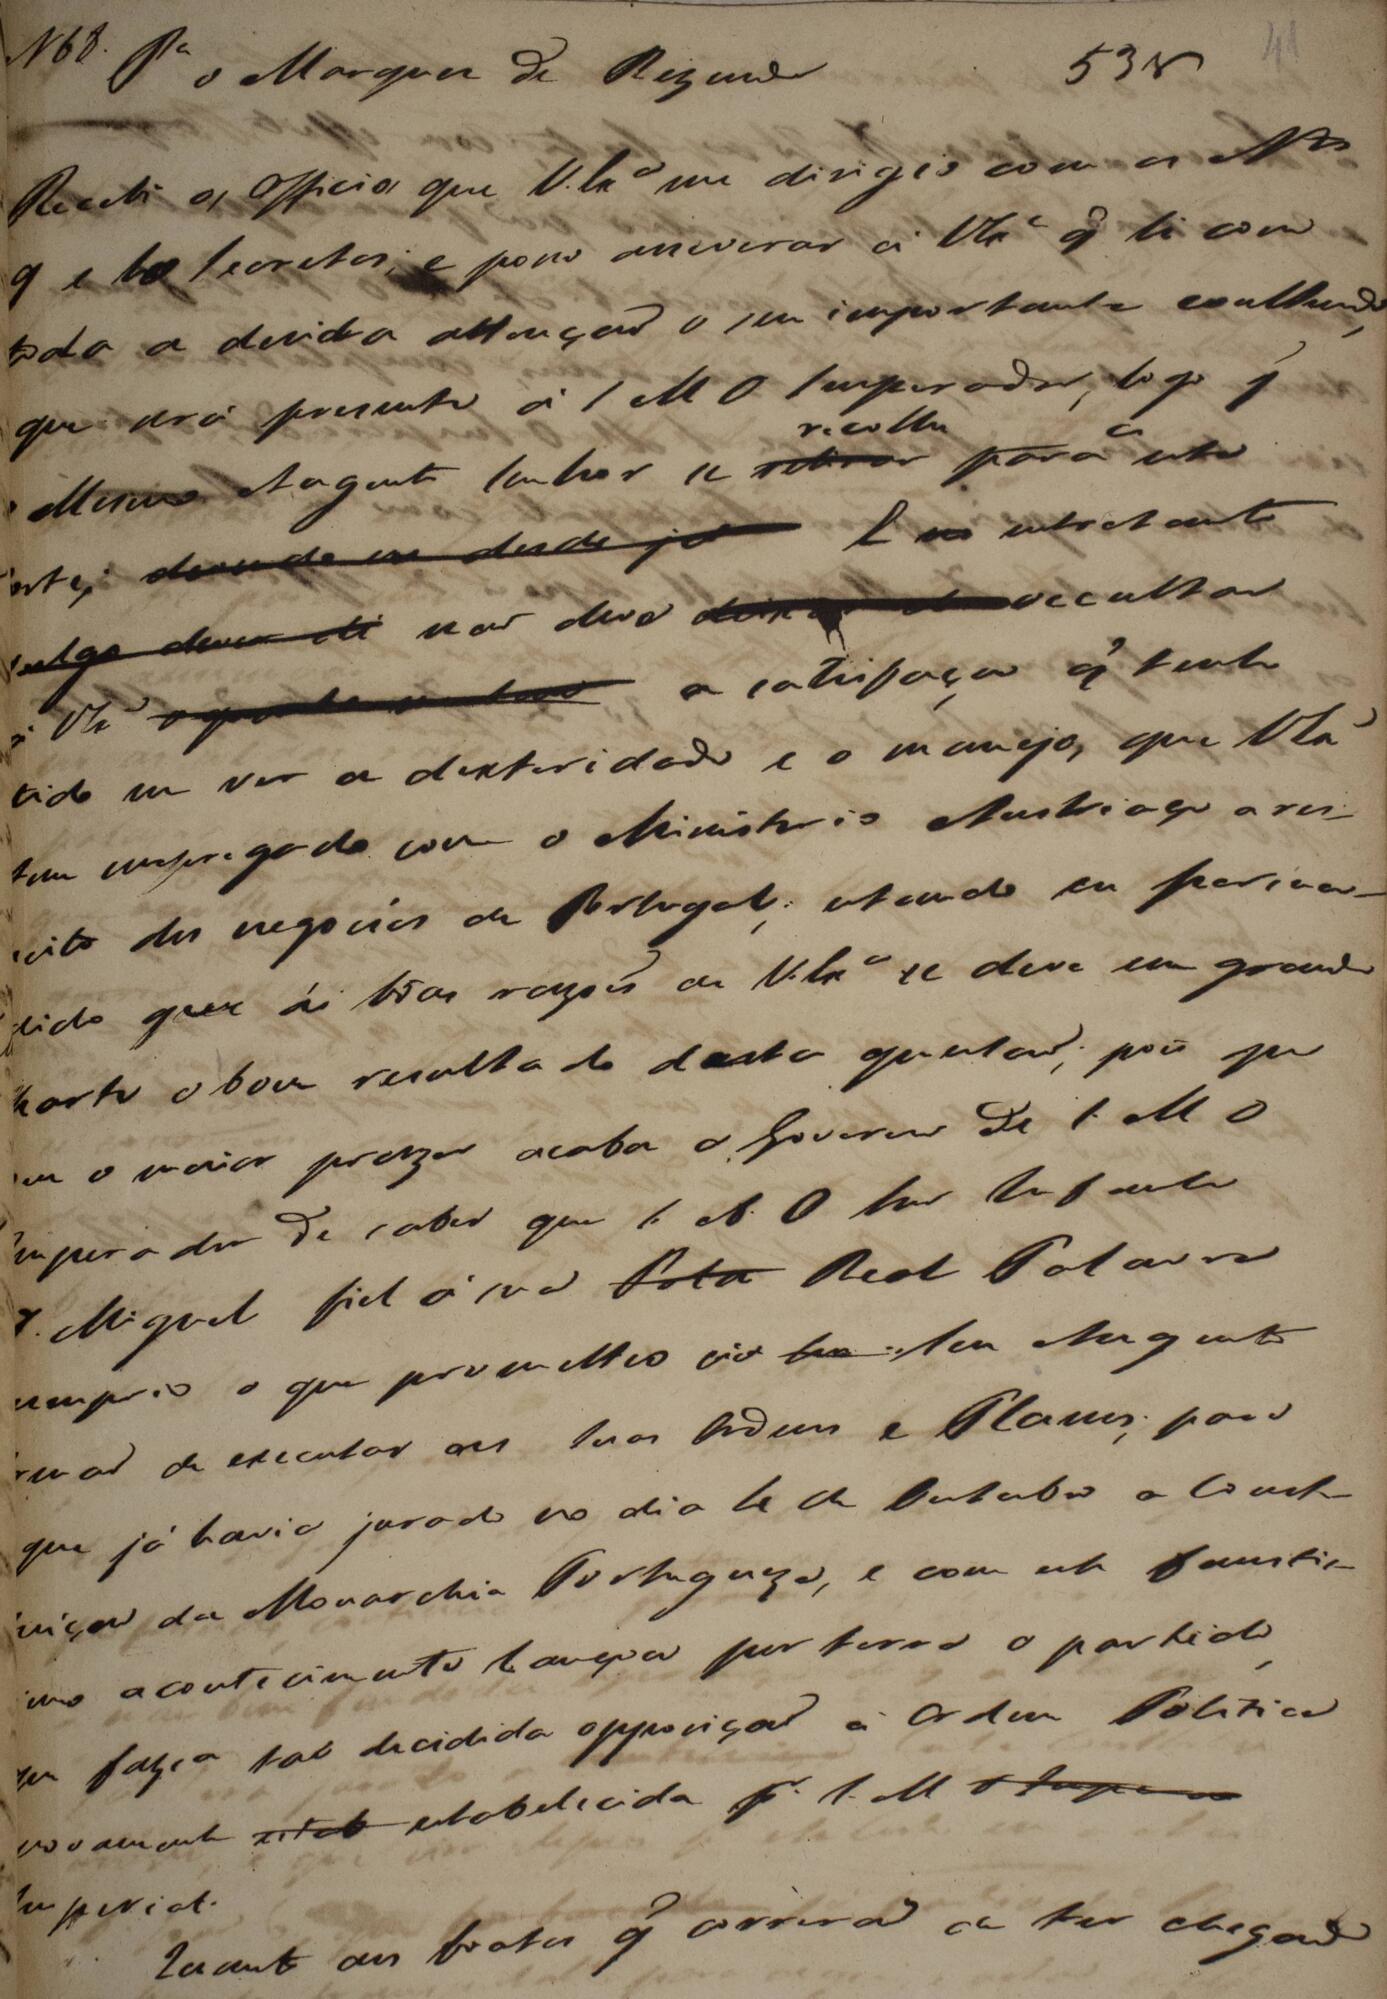 N 68. Pa o Marquez de Rezende 538 41
Recebi os Officios que V.Exa me dirigio com os Nos
9 e 10 secretos; e posso asseverar á VExa q̃ li com
toda a devida attenção o seu importante contheudo,
que será presente á S M O Imperador, logo q̃
o Mesmo Augusto Senhor se retirar recolha para a esta
Corte; devendo eu desde já E no entretanto
julgo dever não devo deixar de occultar
á VExa a satisfação q̃ tenho
tido em ver a dexteridade e o manejo, que VExa
tem empregado com o Ministerio Austriaco a res-
peito dos negocios de Portugal; estando eu persua-
dido que ás bôas razões de V.Exa se deve em grande
parte o bom resultado desta questão; pois que
com o maior prazer acaba o Governo de S. M O
Imperador de saber que S. A. O Snr Infante
D. Miguel fiel á sua Real Palavra
cumprio o que prometteo ao Seu Augusto
Irmão de executar as suas Ordens e Planos; pois
que já havia jurado no dia 4 de Outubro a Const-
tuição da Monarchia Portugueza, e com este faustis-
simo acontecimento lançou por terra o partido,
que fazia tão decidida opposição á Ordem Politica
novamente estab estabelecida pr. S. M O Impera
Imperial.
Quanto aos boatos q̃ correrão de ter chegado